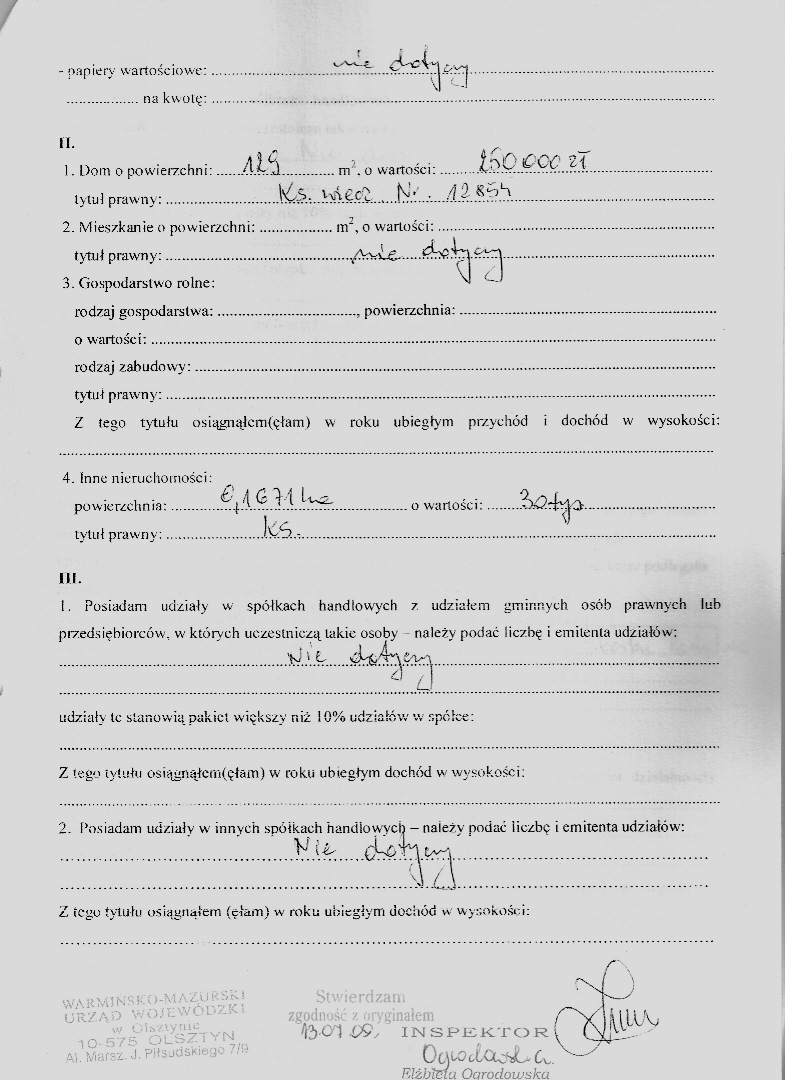 - papiery wartościowe: ........ nie dotyczy ........
........ na kwotę: ........
II.
1. Dom o powierzchni: ..... 129 ..... m², o wartości: ..... 250 000 zł .....
tytuł prawny: ........ Ks. wiecz. Nr. 12854 ........
2. Mieszkanie o powierzchni: ........ m², o wartości: ........
tytuł prawny: ........ nie dotyczy ........
3. Gospodarstwo rolne:
rodzaj gospodarstwa: ........, powierzchnia: ........
o wartości: ........
rodzaj zabudowy: ........
tytuł prawny: ........
Z tego tytułu osiągnąłem(ęłam) w roku ubiegłym przychód i dochód w wysokości:
........
4. Inne nieruchomości:
powierzchnia: ........ 0,1671 ha ........ o wartości: ..... 30 tys .....
tytuł prawny: ........ KS. ........
III.
1. Posiadam udziały w spółkach handlowych z udziałem gminnych osób prawnych lub
przedsiębiorców, w których uczestniczą takie osoby – należy podać liczbę i emitenta udziałów:
........ Nie dotyczy ........
........
udziały te stanowią pakiet większy niż 10% udziałów w spółce:
........
Z tego tytułu osiągnąłem(ęłam) w roku ubiegłym dochód w wysokości:
........
2. Posiadam udziały w innych spółkach handlowych – należy podać liczbę i emitenta udziałów:
........ Nie dotyczy ........
........
Z tego tytułu osiągnąłem (ęłam) w roku ubiegłym dochód w wysokości:
........
WARMIŃSKO-MAZURSKI
URZĄD WOJEWÓDZKI
w Olsztynie
10-575 OLSZTYN
Al. Marsz. J. Piłsudskiego 7/9
Stwierdzam
zgodność z oryginałem
13.07.09.
INSPEKTOR
Ogrodowska
Elżbieta Ogrodowska